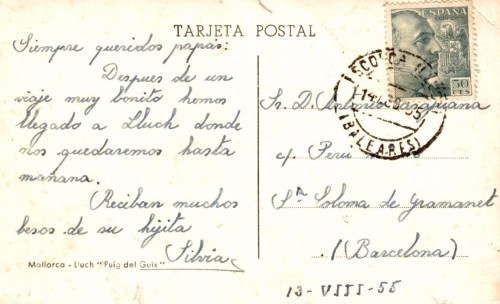 TARJETA POSTAL
Siempre queridos papás:
Despues de un
viaje muy bonito hemos
llegado a Lluch donde
nos quedaremos hasta
mañana.
Reciban muchos
besos de su hijita
Silvia
Mallorca - Lluch "Puig del Guix"
ESPAÑA
50
CTS
ESCORCA
(BALEARES)
Sr. D. Antonio
c/. Perú
Sta Coloma de Gramanet
(Barcelona)
13-VIII-55